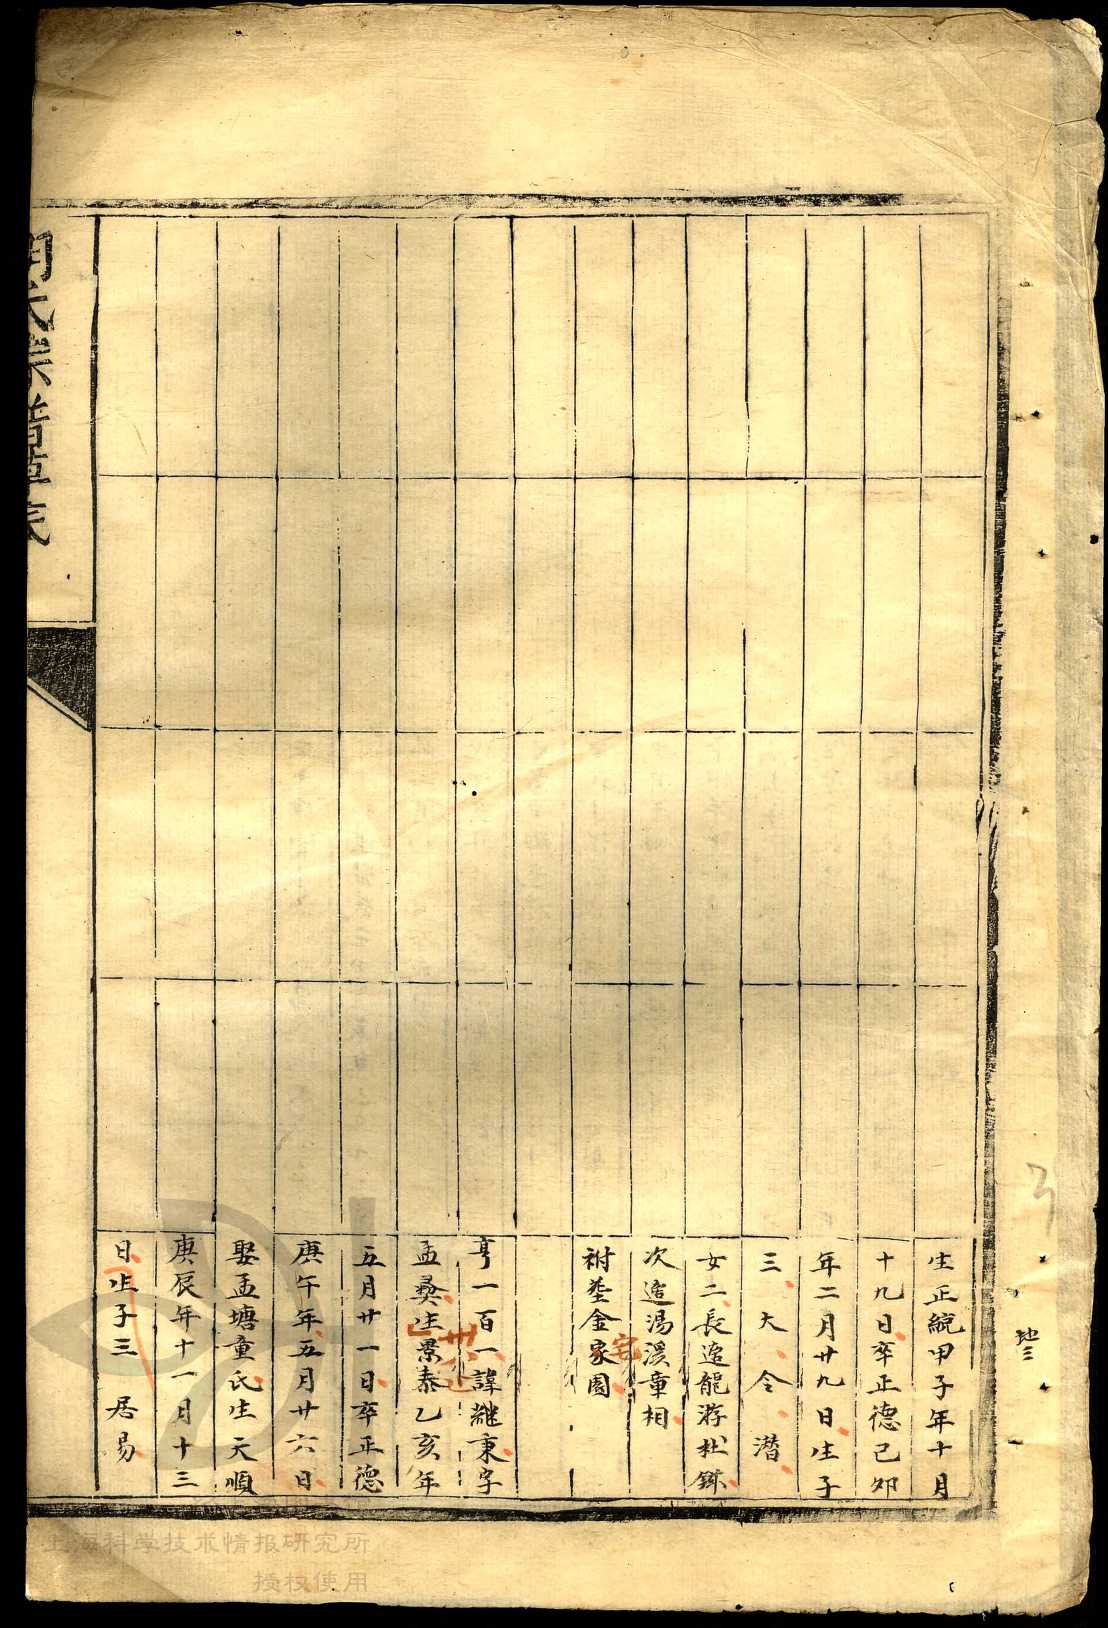 生正統甲子年十月
十九日卒正德己卯
年二月廿九日生子
三 大 令 潛
女二長適龍游杜錸
次適湯溪章相
祔塟金家園
宅
亨一百一諱繼秉字
卅六
孟彝生景泰乙亥年
五月廿一日卒正德
庚午年五月廿六日
娶孟塘童氏生天順
庚辰年十一月十三
日生子三 居易
氏宗譜草表
上海科学技术情报研究所
授权使用